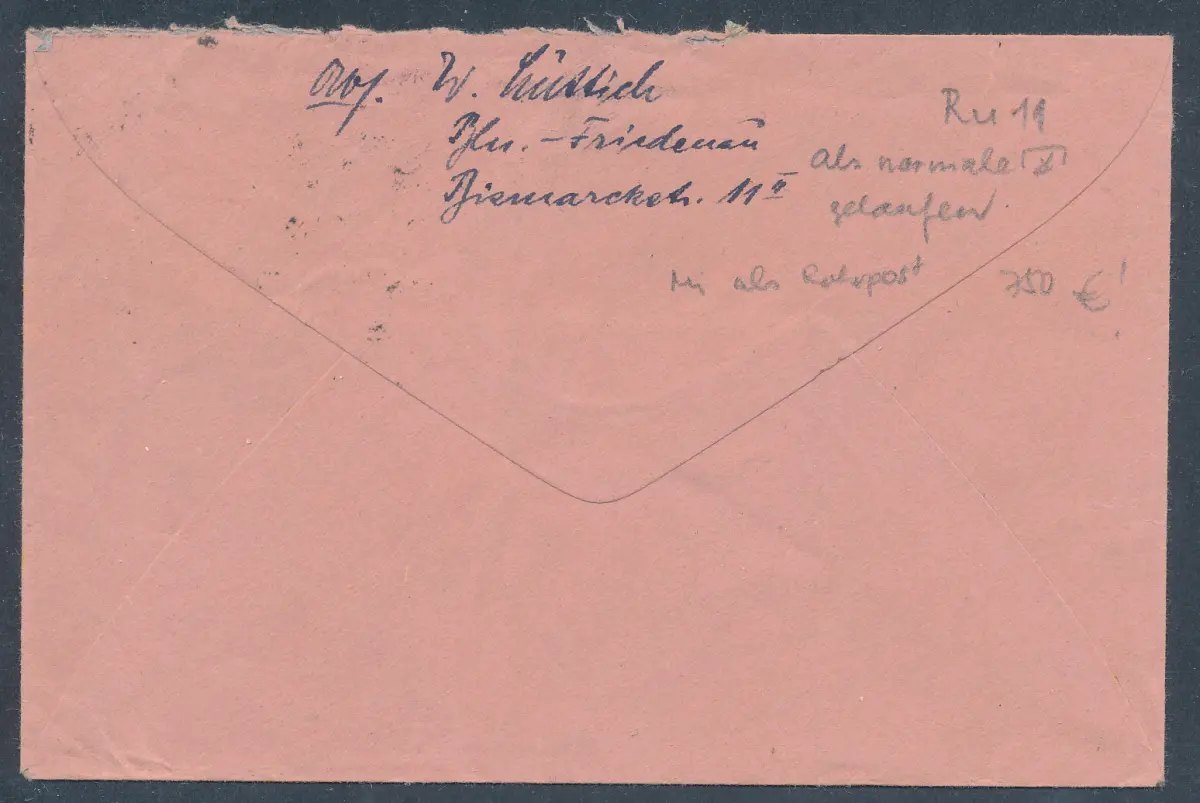 Abs. W. Lüttich
Bln.-Friedenau
Bismarckstr. 11 II
Ru 19
als normale
gelaufen
Mi als Rohrpost 750 €!